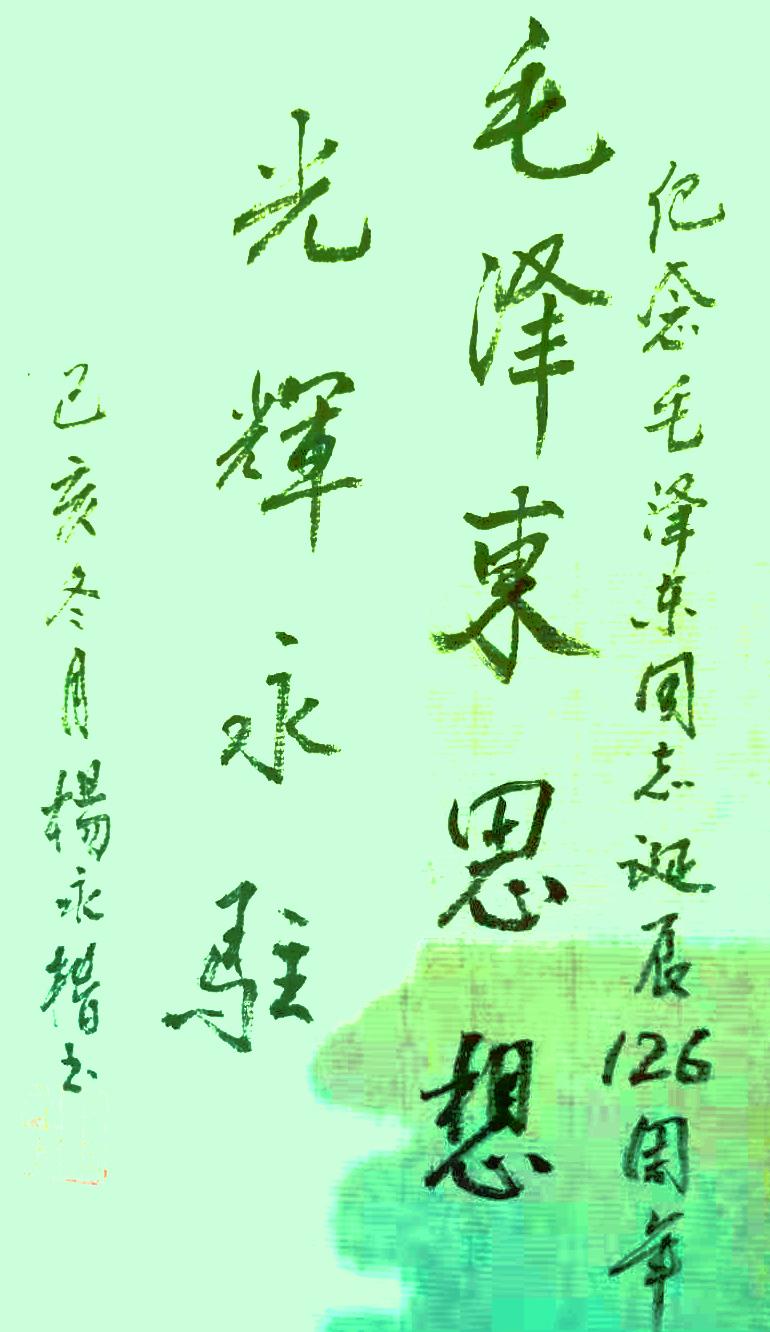 纪念毛泽东同志诞辰126周年
毛泽東思想
光輝永駐
己亥冬月楊永楷书